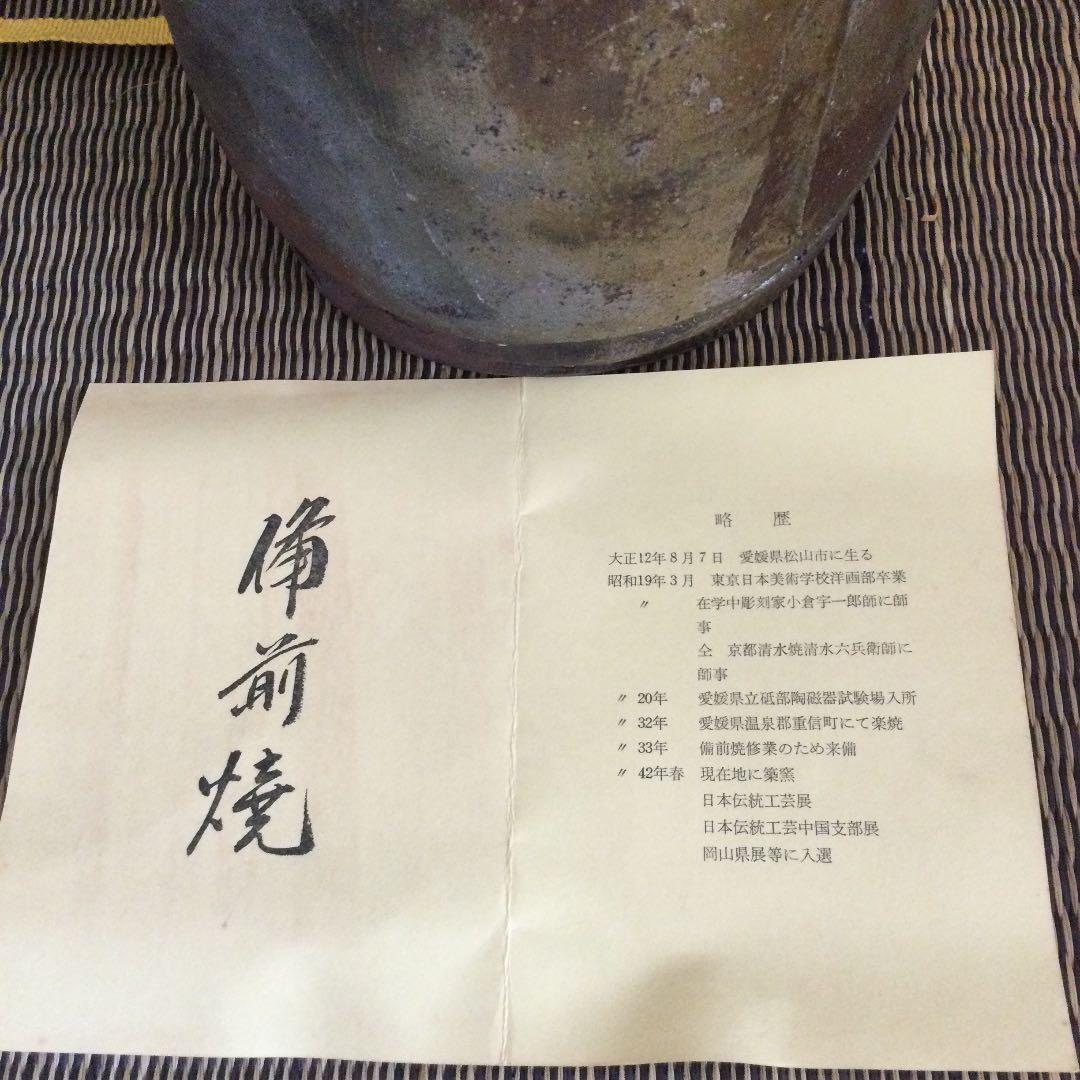 備前燒
略 歴
大正12年8月7日 愛媛県松山市に生る
昭和19年3月 東京日本美術学校洋画部卒業
〃 在学中彫刻家小倉宇一郎師に師
事
仝 京都清水焼清水六兵衛師に
師事
〃 20年 愛媛県立砥部陶磁器試験場入所
〃 32年 愛媛県温泉郡重信町にて楽焼
〃 33年 備前焼修業のため来備
〃 42年春 現在地に築窯
日本伝統工芸展
日本伝統工芸中国支部展
岡山県展等に入選